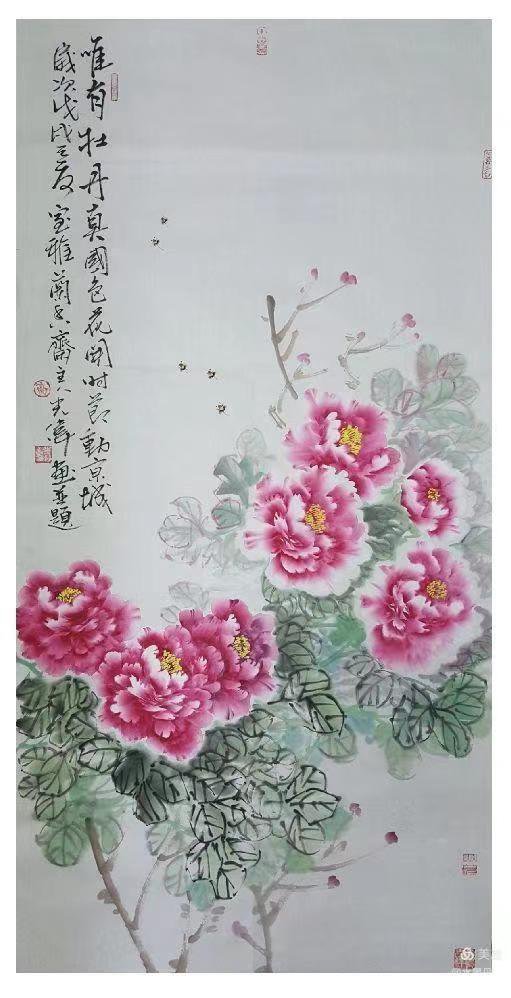 唯有牡丹真國色花開時節動京城
歲次戊戌之夏 室雅蘭香齋主人光軍畫並題
美